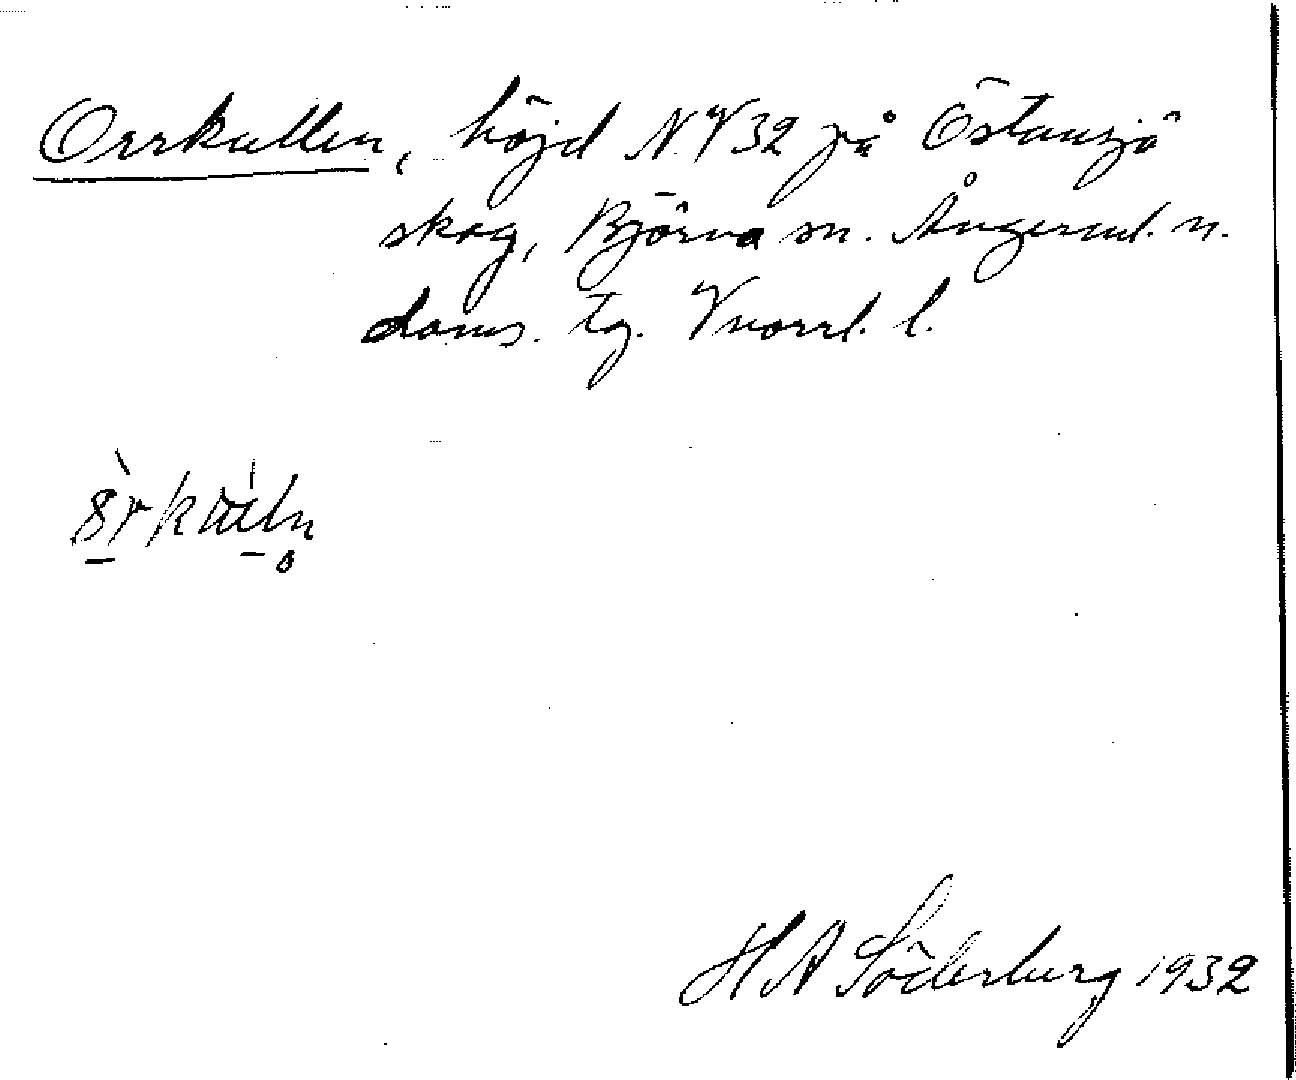 Orrkullen, höjd N.V 32 på Östansjö
skog, Björna sn. Ångerml. n.
doms. tg. Vnorrl. l.
H A Söderberg 1932